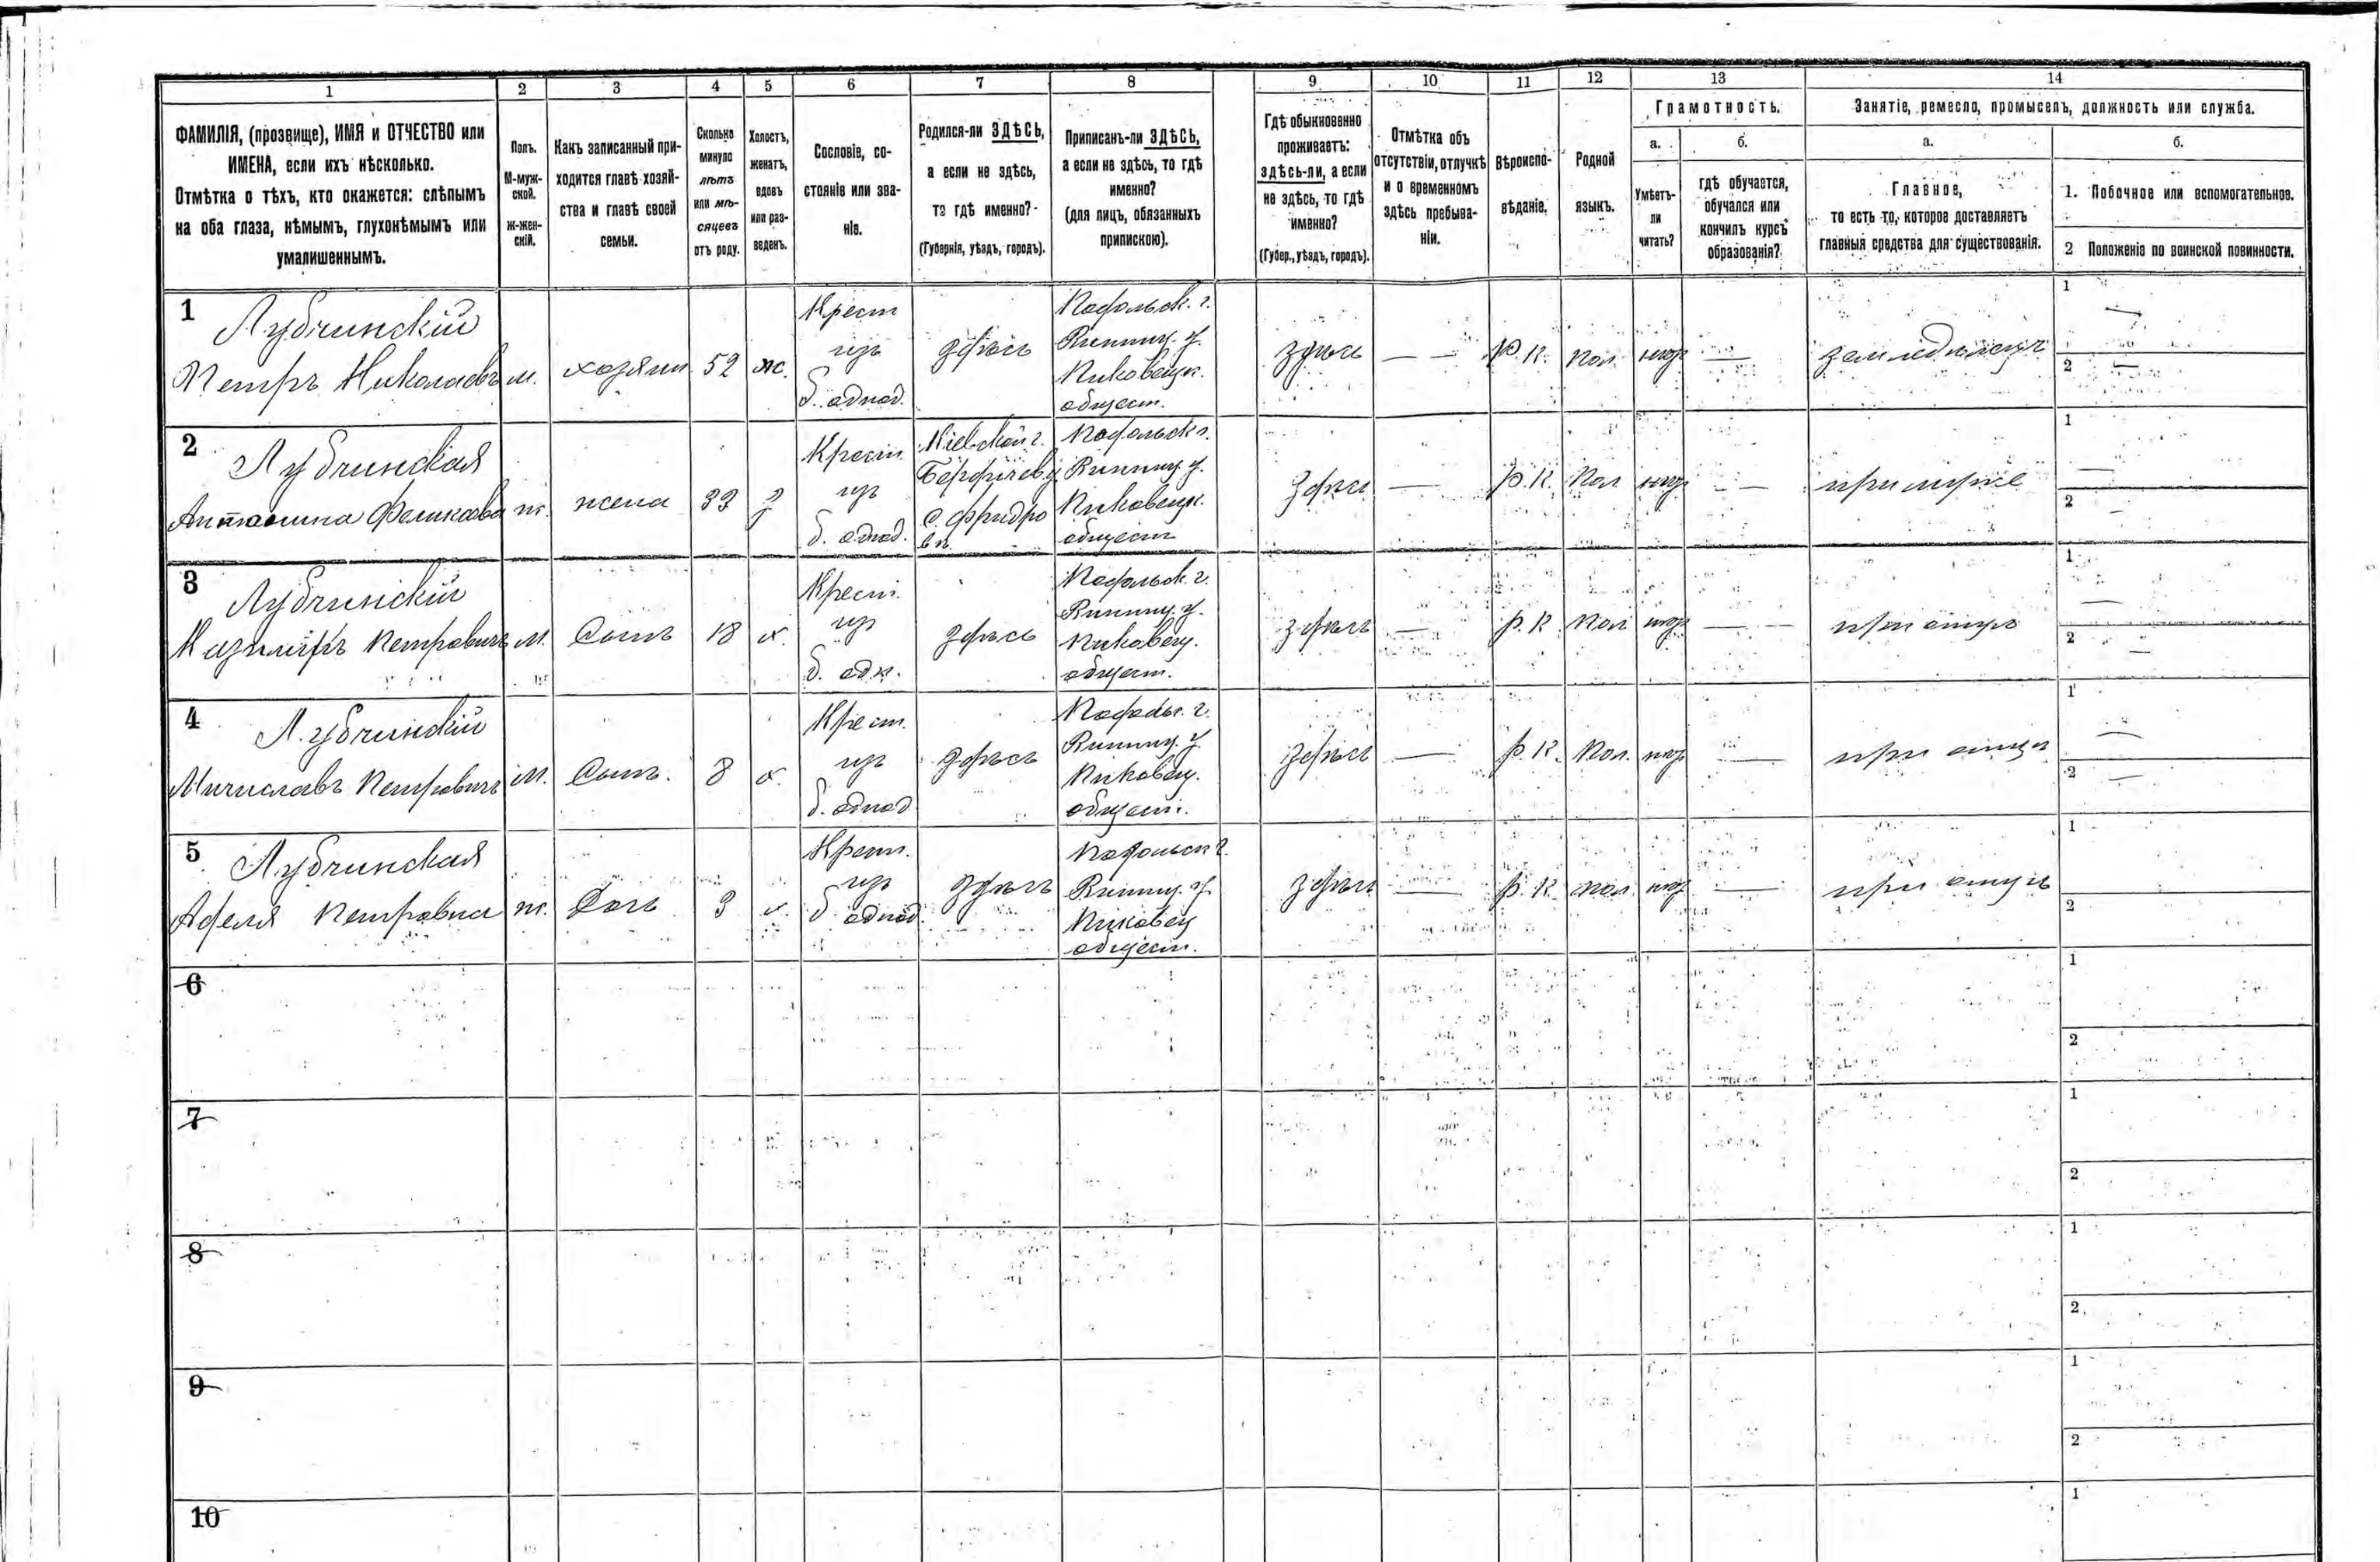 1 2 3 4 5 6 7 8 9 10 11 12 13 14
ФАМИЛІЯ, (прозвище), ИМЯ и ОТЧЕСТВО или
ИМЕНА, если ихъ нѣсколько.
Отмѣтка о тѣхъ, кто окажется: слѣпымъ
на оба глаза, нѣмымъ, глухонѣмымъ или
умалишеннымъ.
Полъ.
М-муж-
ской.
ж-жен-
скій.
Какъ записанный при-
ходится главѣ хозяй-
ства и главѣ своей
семьи.
Сколько
минуло
лѣтъ
или мѣ-
сяцевъ
отъ роду.
Холостъ,
женатъ,
вдовъ
или раз-
веденъ.
Сословіе, со-
стояніе или зва-
ніе.
Родился-ли ЗДѢСЬ,
а если не здѣсь,
то гдѣ именно?
(Губернія, уѣздъ, городъ).
Приписанъ-ли ЗДѢСЬ,
а если не здѣсь, то гдѣ
именно?
(для лицъ, обязанныхъ
припискою).
Гдѣ обыкновенно
проживаетъ:
здѣсь-ли, а если
не здѣсь, то гдѣ
именно?
(Губер., уѣздъ, городъ).
Отмѣтка объ
отсутствіи, отлучкѣ
и о временномъ
здѣсь пребыва-
ніи.
Вѣроиспо-
вѣданіе.
Родной
языкъ.
Грамотность.
а.
Умѣетъ-
ли
читать?
б.
гдѣ обучается,
обучался или
кончилъ курсъ
образованія?
Занятіе, ремесло, промыселъ, должность или служба.
а.
Главное,
то есть то, которое доставляетъ
главныя средства для существованія.
б.
1. Побочное или вспомогательное.
2 Положеніе по воинской повинности.
1
Лубчинскій
Петръ Николаевъ
м.
хозяин
52
ж.
Крест
изъ
б. однод.
здѣсь
Подольск. г.
Винниц. у.
Пиковецк.
общест.
здѣсь
— —
Р. К.
пол.
нѣтъ
—
земледѣлецъ
1
—
2
—
2
Лубчинская
Антонина Феликсова
ж.
жена
33
з
Крест.
изъ
б. однод.
Кіевской г.
Бердичев. у.
с. Фридро
вк.
Подольск г.
Винниц у.
Пиковецк.
общест
здѣсь
—
р. К.
Пол
нѣтъ
— —
при мужѣ
1
—
2
3
Лубчинскій
Казиміръ Петровичъ
м.
Сынъ
18
х.
Крест.
изъ
б. одн.
здѣсь
Подольск. г.
Винниц. у.
Пиковец.
общест.
здѣсь
—
р. К.
Пол
нѣтъ
— —
при отцѣ
1
—
2
—
4
Лубчинскій
Мичиславъ Петровичъ
м.
Сынъ.
8
х.
Крест.
изъ
б. однод
здѣсь
Подольс. г.
Винниц. у.
Пиковец.
общест.
здѣсь
—
р. К.
Пол.
нѣтъ
—
при отцѣ
1
—
2
—
5
Лубчинская
Аделя Петровна
ж.
Доч
3
х.
Крест.
изъ
б однод.
здѣсь
Подольск г.
Винниц. у.
Пиковец
общест.
здѣсь
—
р. К.
пол
нѣтъ
—
при отцѣ
1
2
6
1
2
7
1
2
8
1
2
9
1
2
10
1